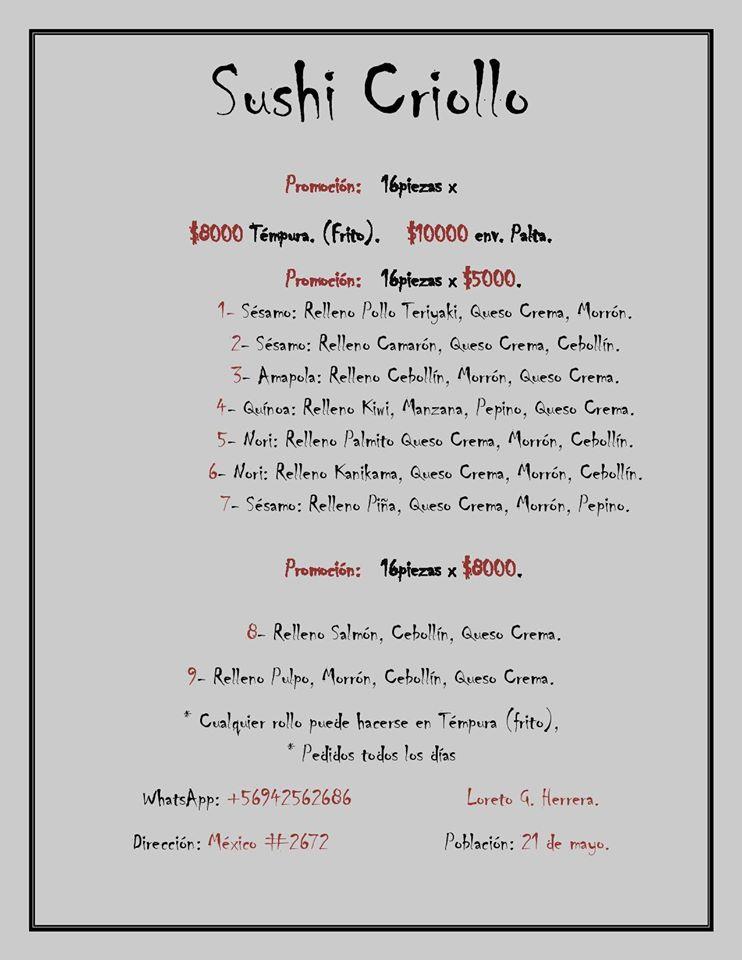 Sushi Criollo
Promoción: 16piezas x
$8000 Témpura. (Frito). $10000 env. Palta.
Promoción: 16piezas x $5000.
1- Sésamo: Relleno Pollo Teriyaki, Queso Crema, Morrón.
2- Sésamo: Relleno Camarón, Queso Crema, Cebollín.
3- Amapola: Relleno Cebollín, Morrón, Queso Crema.
4- Quínoa: Relleno Kiwi, Manzana, Pepino, Queso Crema.
5- Nori: Relleno Palmito Queso Crema, Morrón, Cebollín.
6- Nori: Relleno Kanikama, Queso Crema, Morrón, Cebollín.
7- Sésamo: Relleno Piña, Queso Crema, Morrón, Pepino.
Promoción: 16piezas x $8000.
8- Relleno Salmón, Cebollín, Queso Crema.
9- Relleno Pulpo, Morrón, Cebollín, Queso Crema.
* Cualquier rollo puede hacerse en Témpura (frito),
* Pedidos todos los días
WhatsApp: +56942562686 Loreto G. Herrera.
Dirección: México #2672 Población: 21 de mayo.